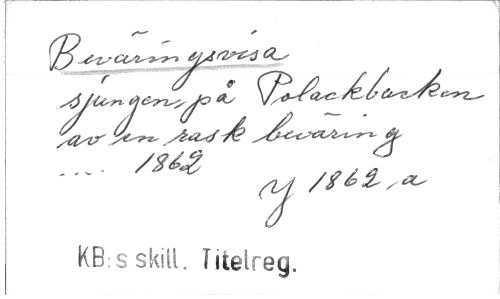 Beväringsvisa
sjungen, på Polackbacken
av en rask beväring
.... 1862
Y 1862, a
KB:s skill. Titelreg.